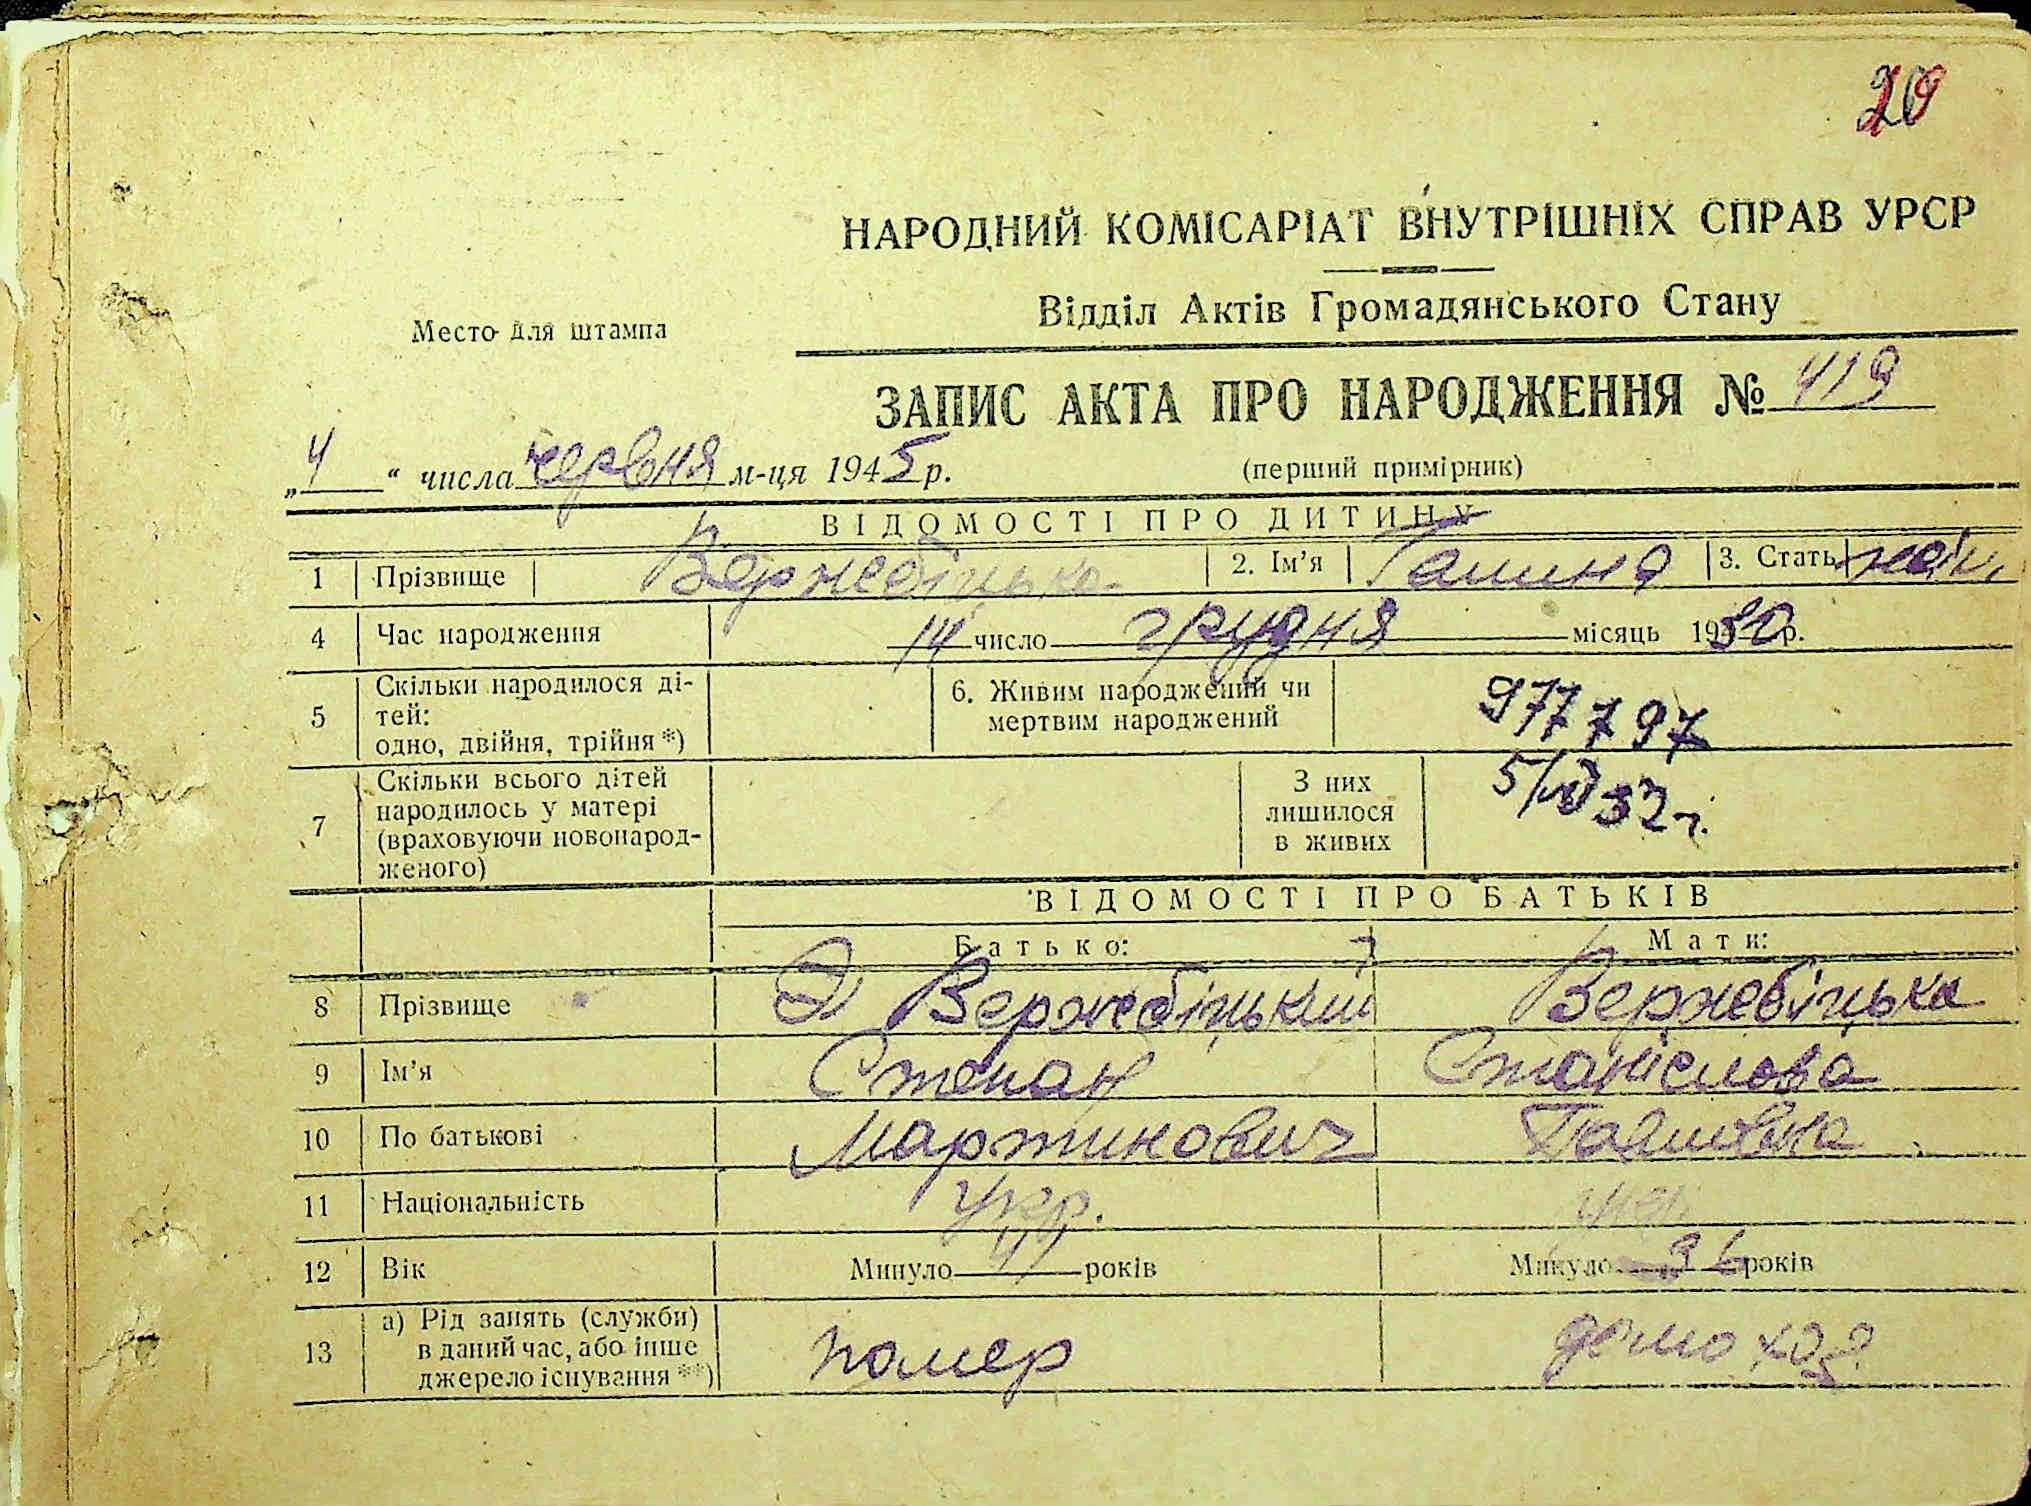 20
НАРОДНИЙ КОМІСАРІАТ ВНУТРІШНІХ СПРАВ УРСР
Відділ Актів Громадянського Стану
Место для штампа
ЗАПИС АКТА ПРО НАРОДЖЕННЯ № 419
„4“ числа червня м-ця 1945 р.
(перший примірник)
ВІДОМОСТІ ПРО ДИТИНУ
1 Прізвище Вержебіцька 2. Ім'я Галина 3. Стать жін.
4 Час народження 14 число грудня місяць 1930 р.
5 Скільки народилося ді-
тей:
одно, двійня, трійня *)
6. Живим народжений чи
мертвим народжений
977797
7 Скільки всього дітей
народилось у матері
(враховуючи новонарод-
женого)
З них
лишилося
в живих
ВІДОМОСТІ ПРО БАТЬКІВ
Батько: Мати:
8 Прізвище Вержебіцький Вержебіцька
9 Ім'я Степан Станіслава
10 По батькові Мартинович
11 Національність укр. укр.
12 Вік Минуло років Минуло 36 років
13 а) Рід занять (служби)
в даний час, або інше
джерело існування **)
помер домохоз.